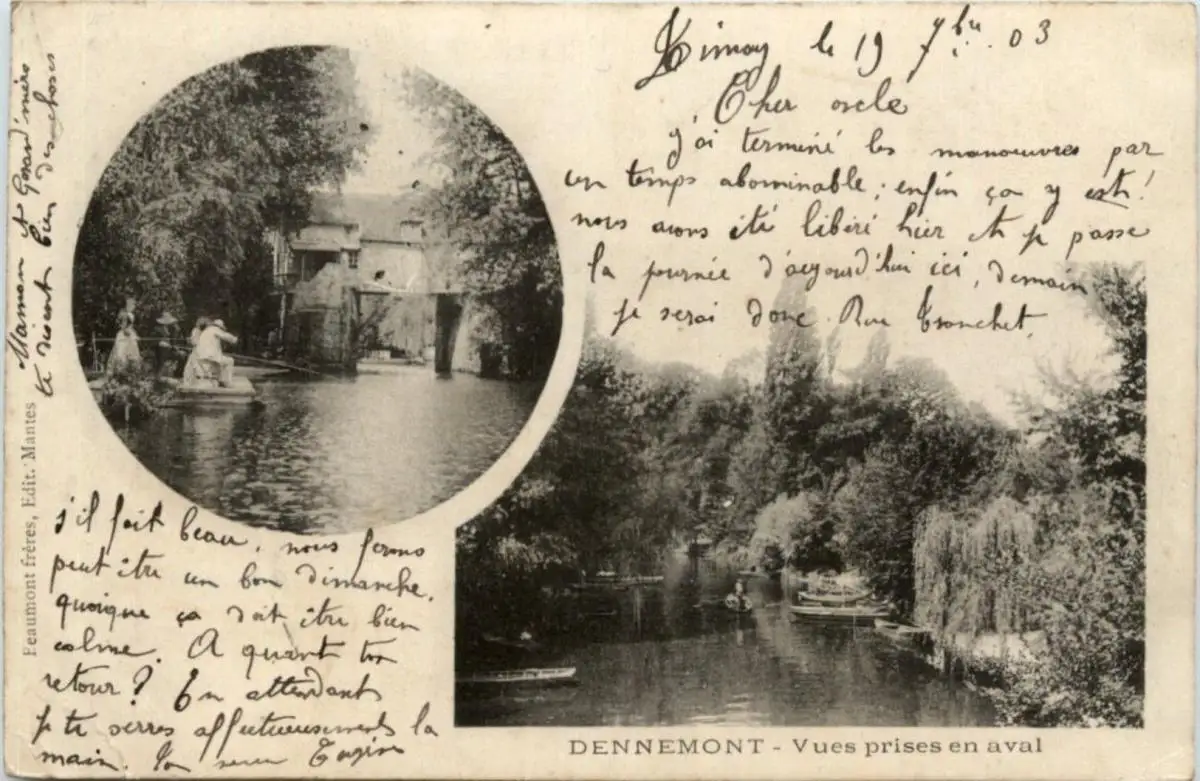 Limay le 19 7bre. 03
Cher oncle
j'ai terminé les manœuvres par
un temps abominable; enfin ça y est!
nous avons été libéré hier et je passe
la journée d'aujourd'hui ici, demain
je serai donc Rue Tronchet,
s'il fait beau, nous ferons
peut être un bon dimanche,
quoique ça doit être bien
calme. A quant ton
retour? En attendant
je te serres affectueusements la
main. Ton
Maman et Grand'mère
te disent bien des choses
Beaumont frères, Edit. Mantes
DENNEMONT - Vues prises en aval